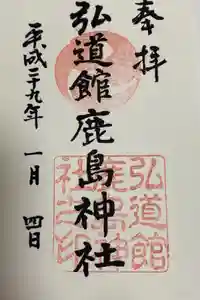 奉拝
弘道館鹿島神社
平成二十九年
一月
四日
弘道館
鹿島神
社之印